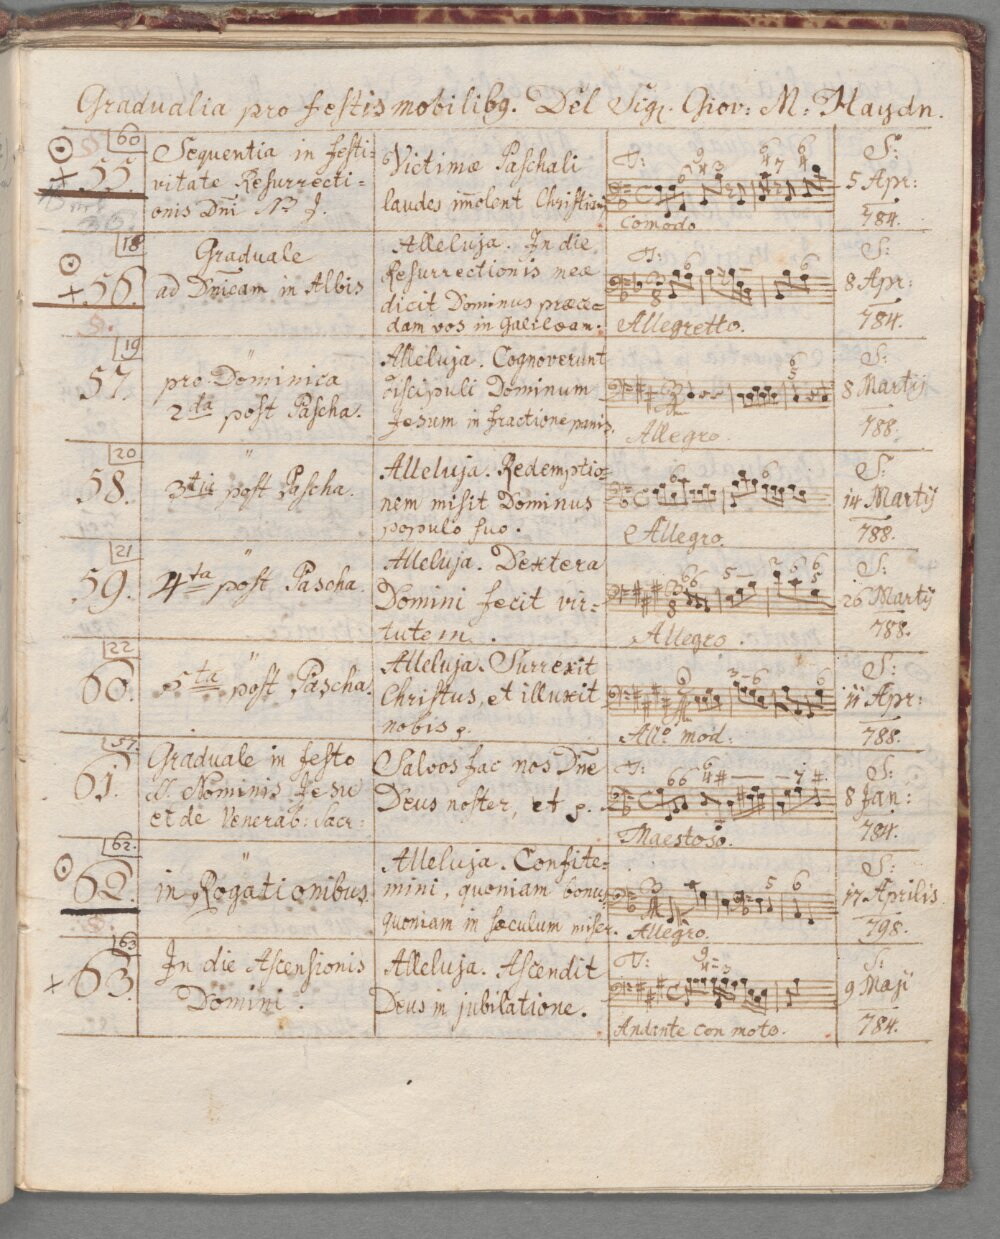 Gradualia pro festis mobilibg. Del Sigr. Giov: M: Haydn.
60
55
Sequentia in festi-
vitate Resurrecti-
onis Dni No I.
Victimæ Paschali
laudes immolent Christiani
T:
Comodo
S:
5 Apr:
784.
18
56.
Graduale
ad Dnicam in Albis
Alleluja. In die
Resurrectionis meæ
dicit Dominus præce-
dam vos in Galilæam.
T:
Allegretto.
S:
8 Apr:
784.
19
57
pro Dominica
2da post Pascha.
Alleluja. Cognoverunt
discipuli Dominum
Jesum in fractione panis.
Allegro.
S:
8 Martij
788.
20
58.
3tia post Pascha.
Alleluja. Redemptio-
nem misit Dominus
populo suo.
Allegro.
S:
14 Martij
788.
21
59.
4ta post Pascha
Alleluja. Dextera
Domini fecit vir-
tutem.
Allegro.
S:
26 Martij
788.
22
60.
5ta post Pascha.
Alleluja. Surrexit
Christus, et illuxit
nobis p.
Allo mod:
S:
11 Apr:
788.
57
61.
Graduale in festo
S. Nominis Jesu
et de Venerab: Sacr:
Salvos fac nos Dne
Deus noster, et p.
T:
Maestoso.
S:
8 Jan:
784.
62.
62.
in Rogationibus.
Alleluja. Confite-
mini, quoniam bonus
quoniam in sæculum miser.
Allegro.
S:
17 Aprilis
795.
63
63.
In die Ascensionis
Domini.
Alleluja. Ascendit
Deus in jubilatione.
T:
Andante con moto.
S:
9 Maji
784.